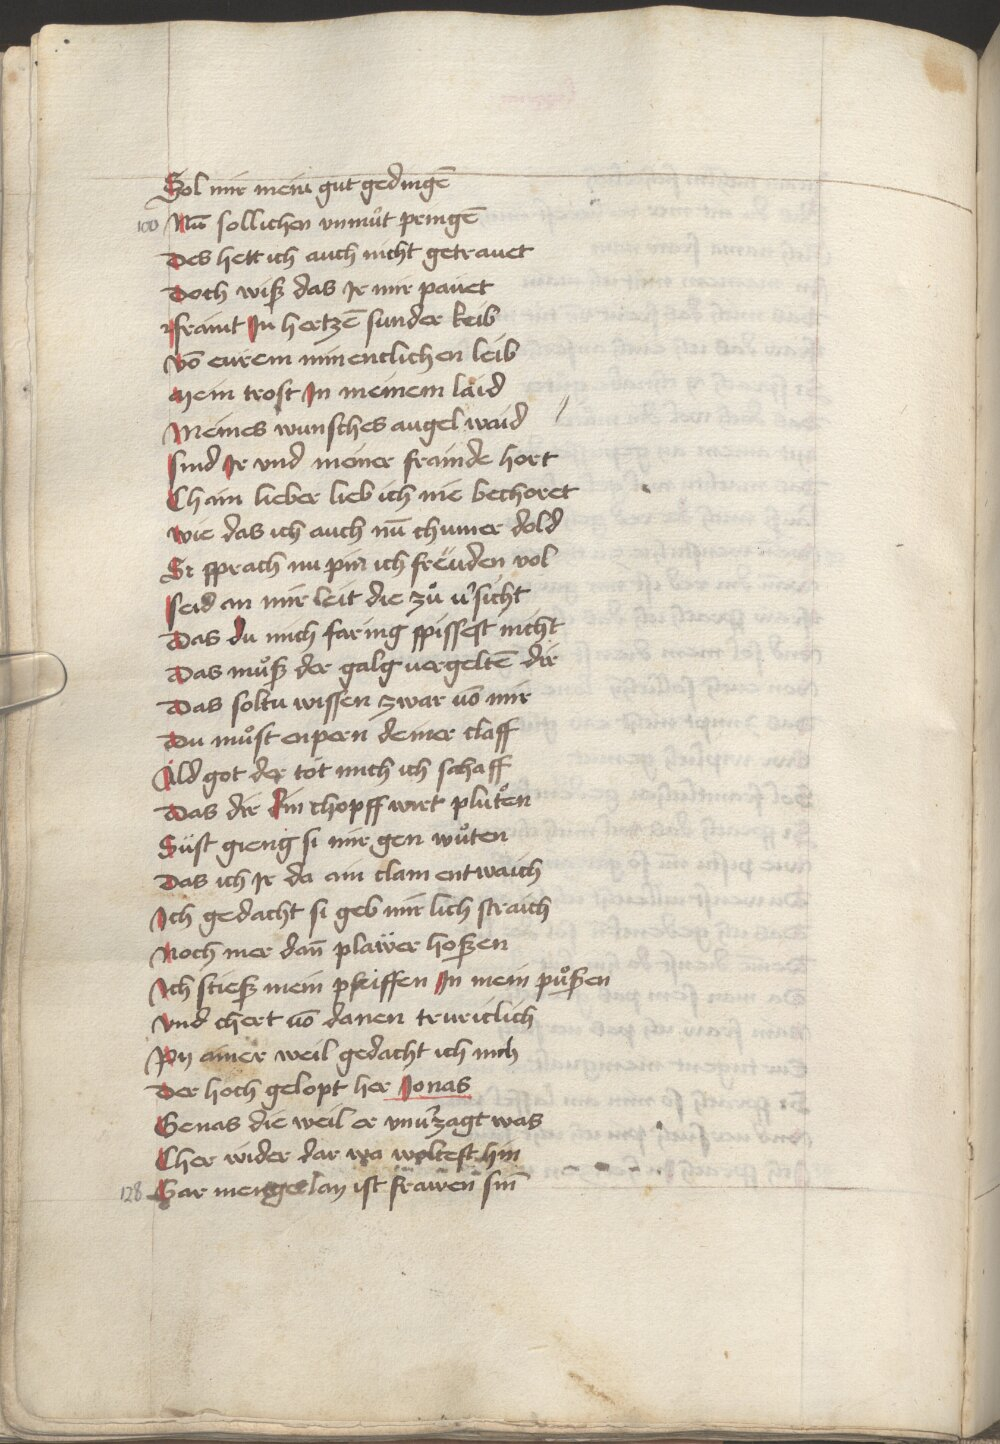 Sol mir mein gut gedingē
100 Nū sollichen vnmůt pringē
Des hett ich auch nicht getrauet
Doch wisß das Ir mir pauet
främt In hertzē sunder keib
Vō eurem minentlichen leib
Mein trost In meinem laid
Meines wunsches augel waid
sind Ir vnd meiner frainde hort
Chain lieber lieb ich nie bechoret
Wie das ich auch nū chumer dold
Si sprach nu pin ich freüden vol
seid an mir leit die zů v̄sicht
Das du mich faring spissest nicht
Das můsß der galg vergeltē dir
Das soltu wissen zwar vō mir
Du můst enpern deiner claff
Ald got der töt mich ich schaff
Das dir din chopff wirt plůten
Süst gieng si mir gen wůten
Das ich Ir da ain clain entwaich
Ich gedacht si geb mir lich straich
Noch mer dañ plawer hosßen
Ich stiesß mein pfeiffen In mein půsßen
Vnd chert vō danen truriclich
Pij ainer weil gedacht ich mich
Der hoch gelopt her Jonas
Genas die weil er vnu̅zagt was
Cher wider dar wa woltest hin
128 Gar mengerlay ist frawen sin̄